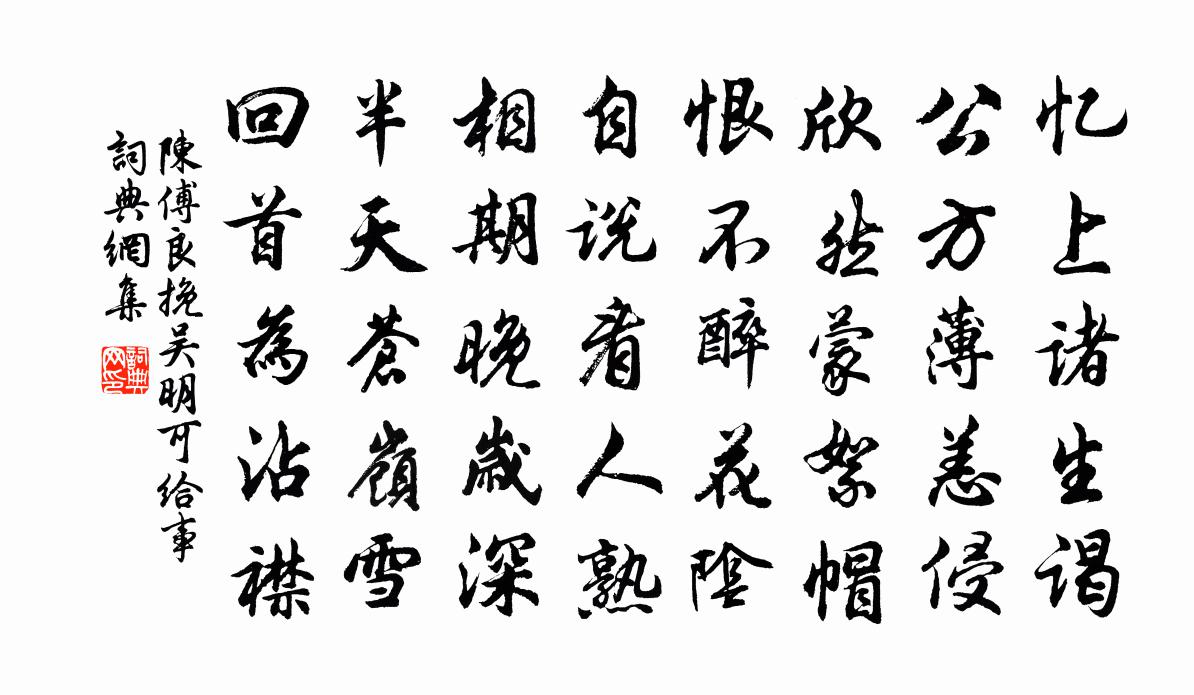 忆上诸生谒
公方薄恙侵
欣然蒙絮帽
恨不醉花陰
自说看人熟
相期晚歳深
半天蒼嶺雪
回首為沾襟
陳傅良挽吴明可給事
詞典網集
詞典网印